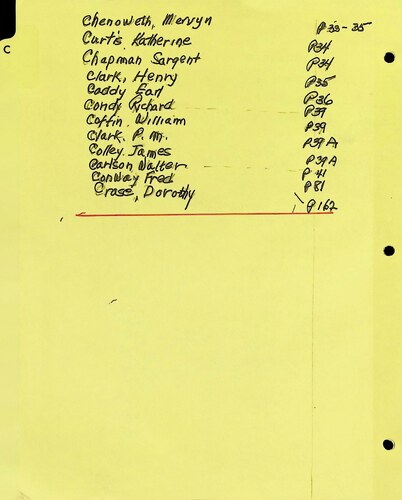 C
Chenoweth, Mervyn P33-35
Curtis, Katherine P34
Chapman Sargent P34
Clark, Henry P35
Caddy Earl P36
Condy Richard P39
Coffin, William P39
Clark, P. M. P39A
Colley, James P39A
Carlson Walter P41
Conway Fred P81
Crase, Dorothy P162